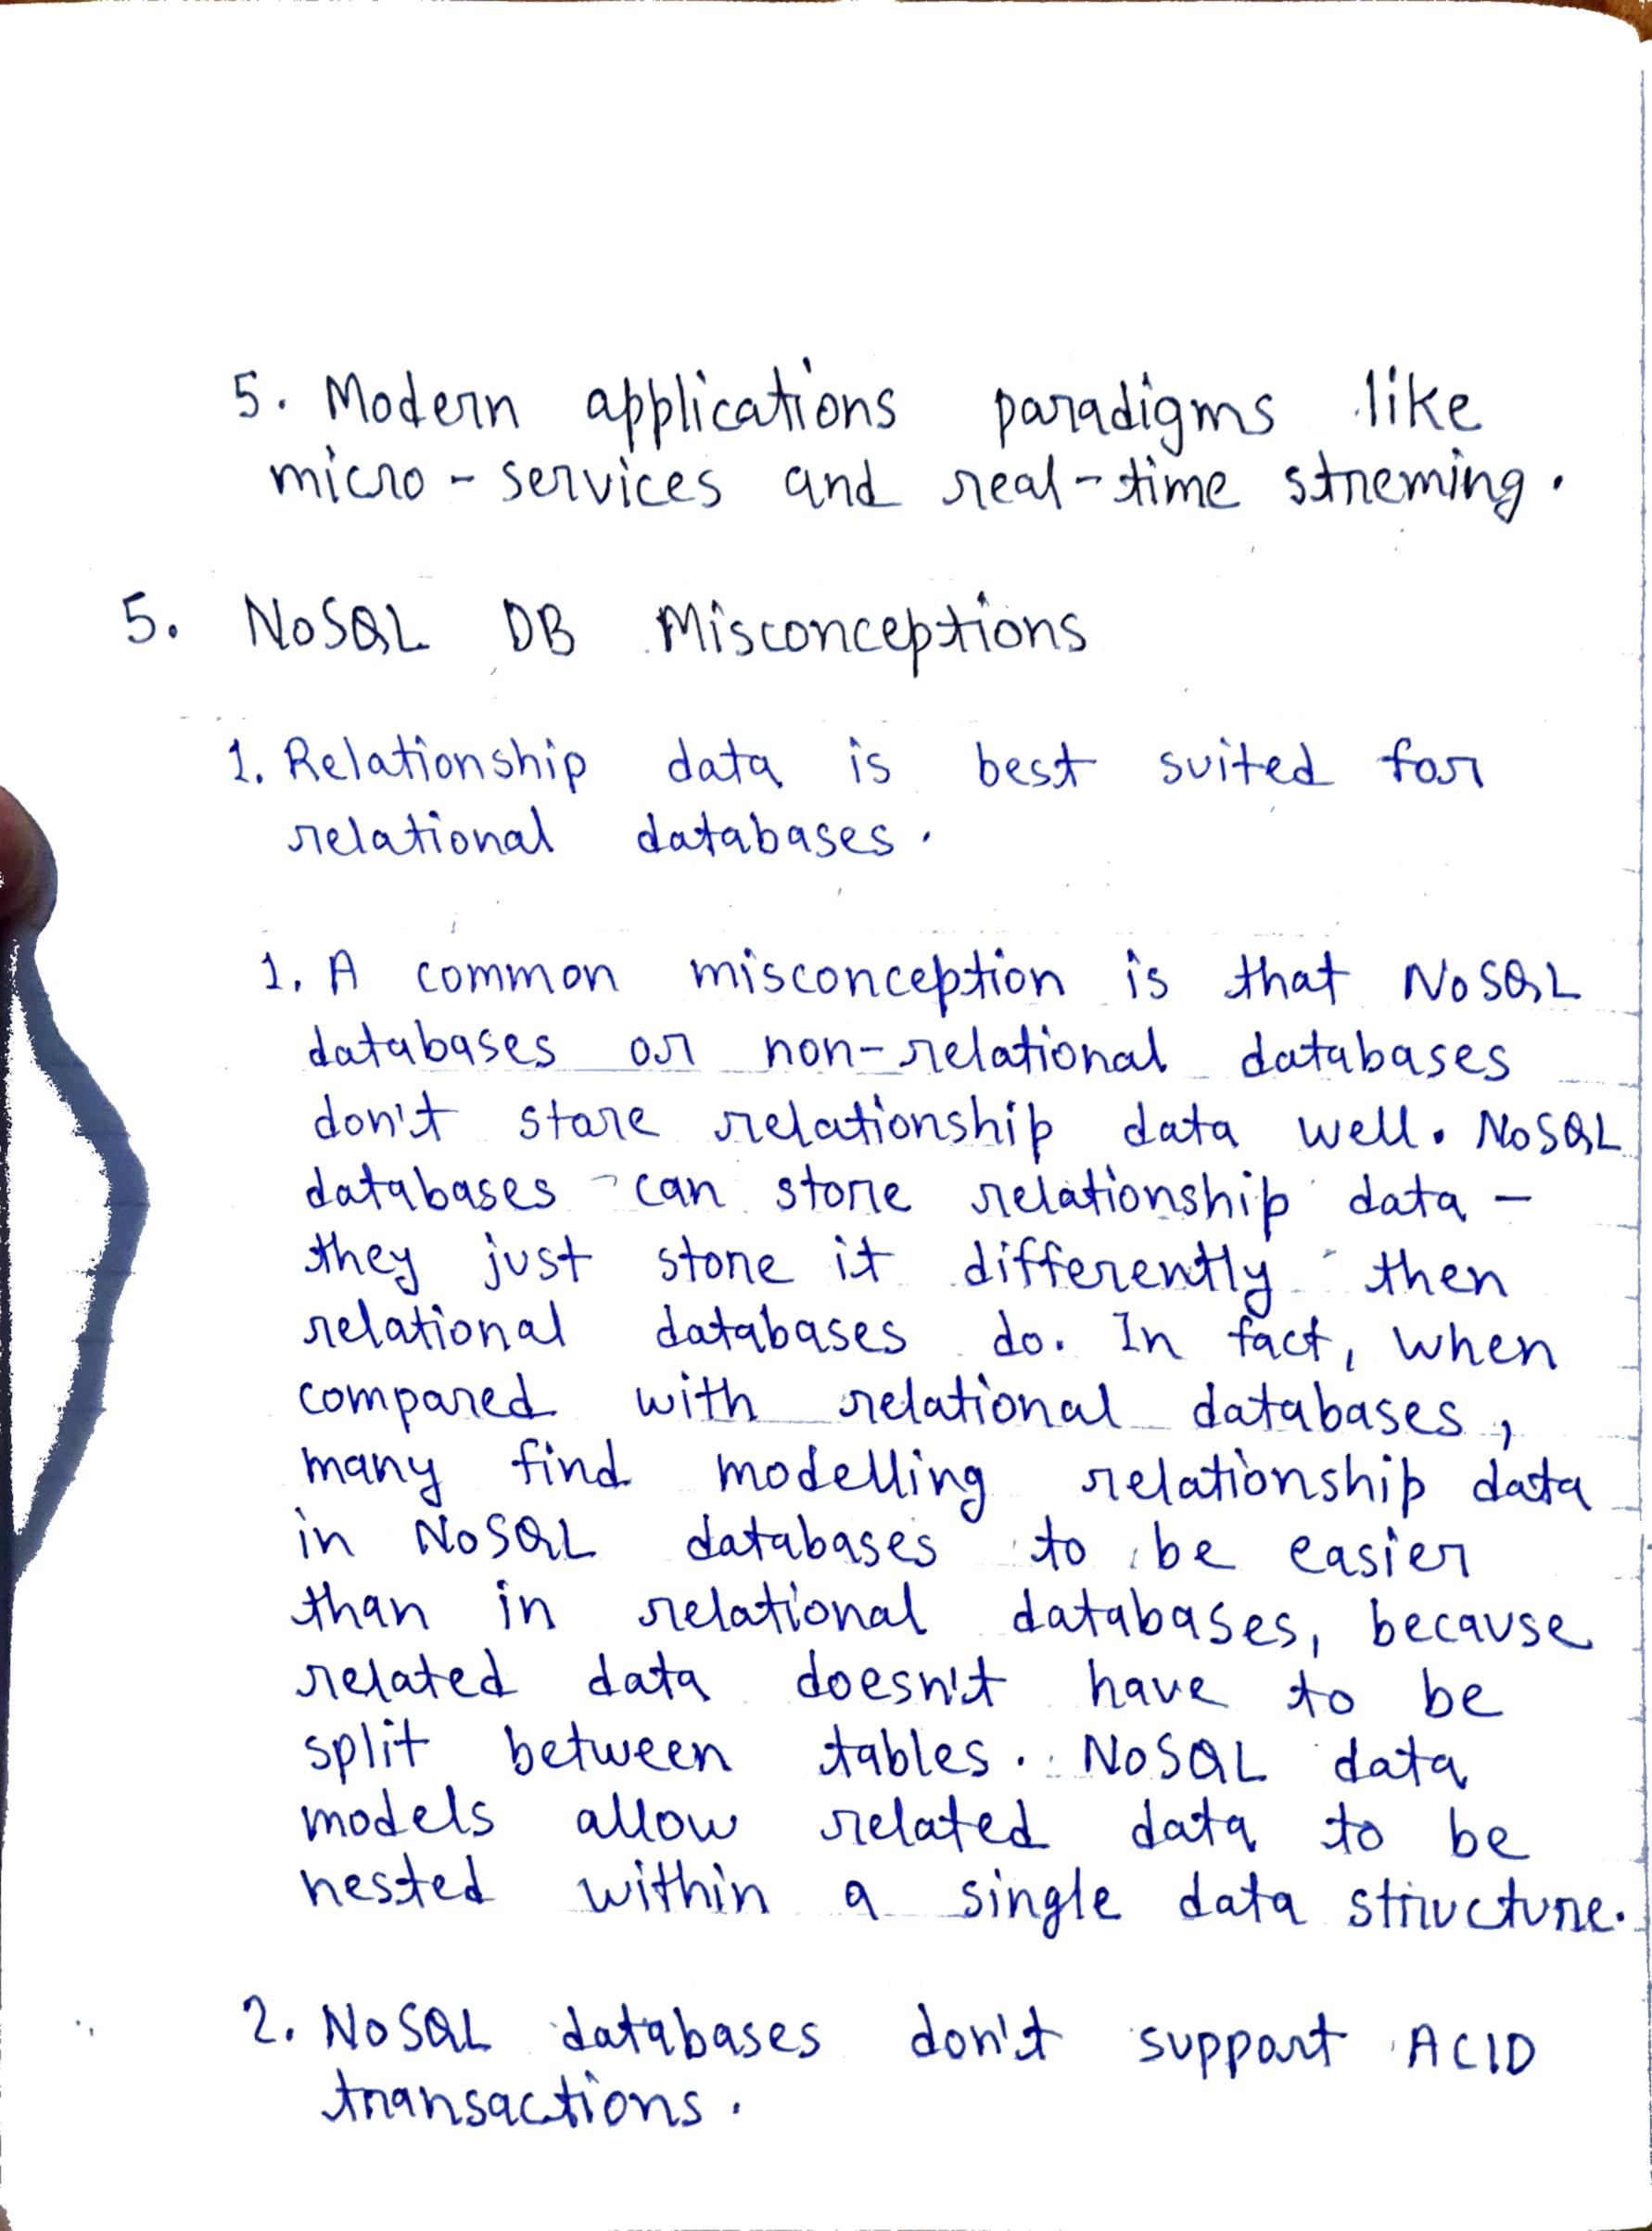 5. Modern applications paradigms like
micro-services and real-time streming.
5. NoSQL DB Misconceptions
1. Relationship data is best suited for
relational databases.
1. A common misconception is that NoSQL
databases or non-relational databases
don't store relationship data well. NoSQL
databases can store relationship data -
they just store it differently then
relational databases do. In fact, when
compared with relational databases,
many find modelling relationship data
in NoSQL databases to be easier
than in relational databases, because
related data doesn't have to be
split between tables. NoSQL data
models allow related data to be
nested within a single data structure.
2. NoSQL databases don't support ACID
transactions.